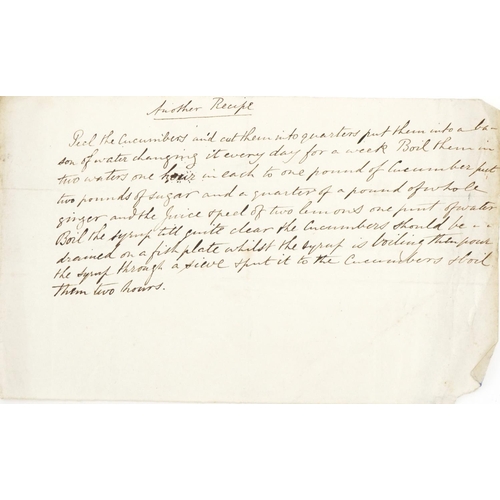 Another Recipe
Peel the Cucumbers and cut them into quarters put them into a ba
son of water changing it every day for a week Boil them in
two waters one hour in each to one pound of Cucumber put
two pounds of sugar and a quarter of a pound of whole
ginger and the juice & peel of two lemons one pint of water
Boil the syrup till quite clear the Cucumbers should be - -
drained on a fish plate whilst the syrup is boiling then pour
the syrup through a sieve & put it to the Cucumbers & boil
them two hours.